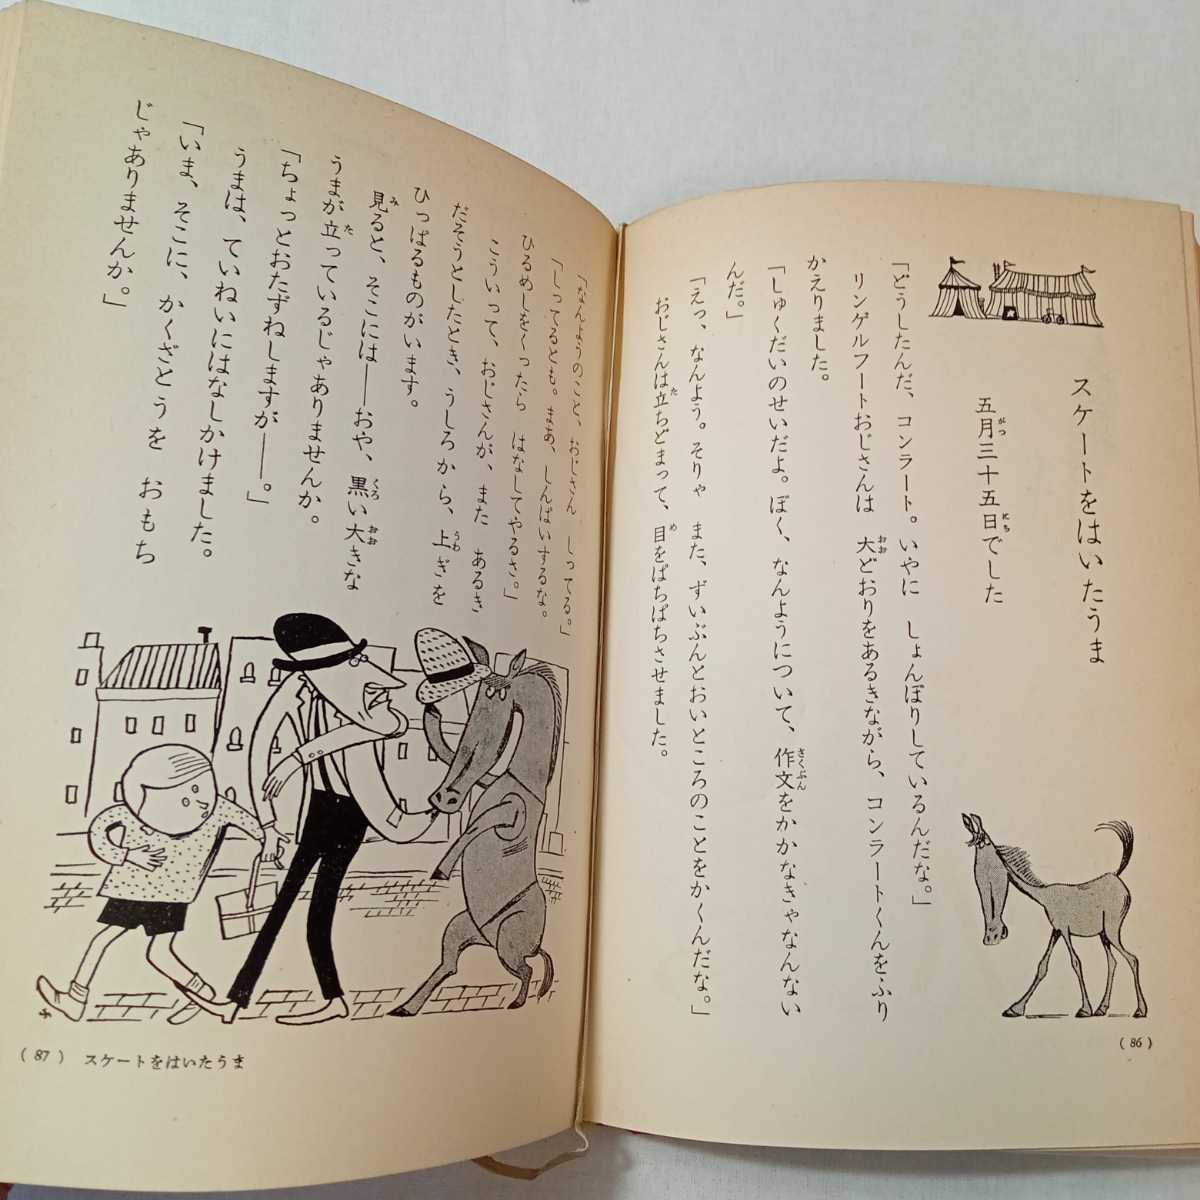 スケートをはいたうま
五月三十五日でした
がつ
にち
「どうしたんだ、コンラート。いやに しょんぼりしているんだな。」
リンゲルフートおじさんは 大どおりをあるきながら、コンラートくんをふり
おお
かえりました。
「しゅくだいのせいだよ。ぼく、なんようについて、作文をかかなきゃなんない
さくぶん
んだ。」
「えっ、なんよう。そりゃ また、ずいぶんとおいところのことをかくんだな。」
おじさんは立ちどまって、目をぱちぱちさせました。
た
め
(86)
「なんようのこと、おじさん しってる。」
「しってるとも。まあ、しんぱいするな。
ひるめしをくったら はなしてやるさ。」
こういって、おじさんが、また あるき
だそうとしたとき、うしろから、上ぎを
うわ
ひっぱるものがいます。
見ると、そこには——おや、黒い大きな
み
くろ
おお
うまが立っているじゃありませんか。
た
「ちょっとおたずねしますが——。」
うまは、ていねいにはなしかけました。
「いま、そこに、かくざとうを おもち
じゃありませんか。」
(87) スケートをはいたうま